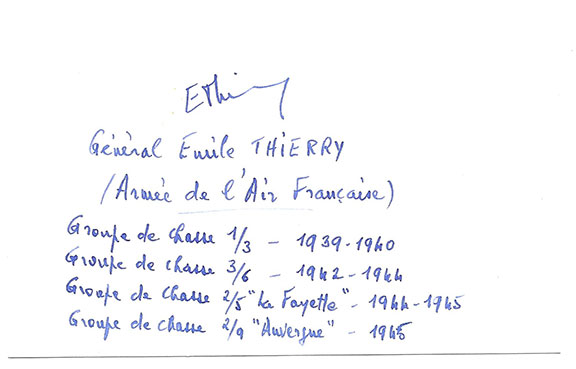 EThi
Général Emile THIERRY
(Armée de l'Air Française)
Groupe de chasse 1/3 - 1939-1940
Groupe de chasse 3/6 - 1942-1944
Groupe de chasse 2/5 "La Fayette" - 1944-1945
Groupe de chasse 2/9 "Auvergne" - 1945